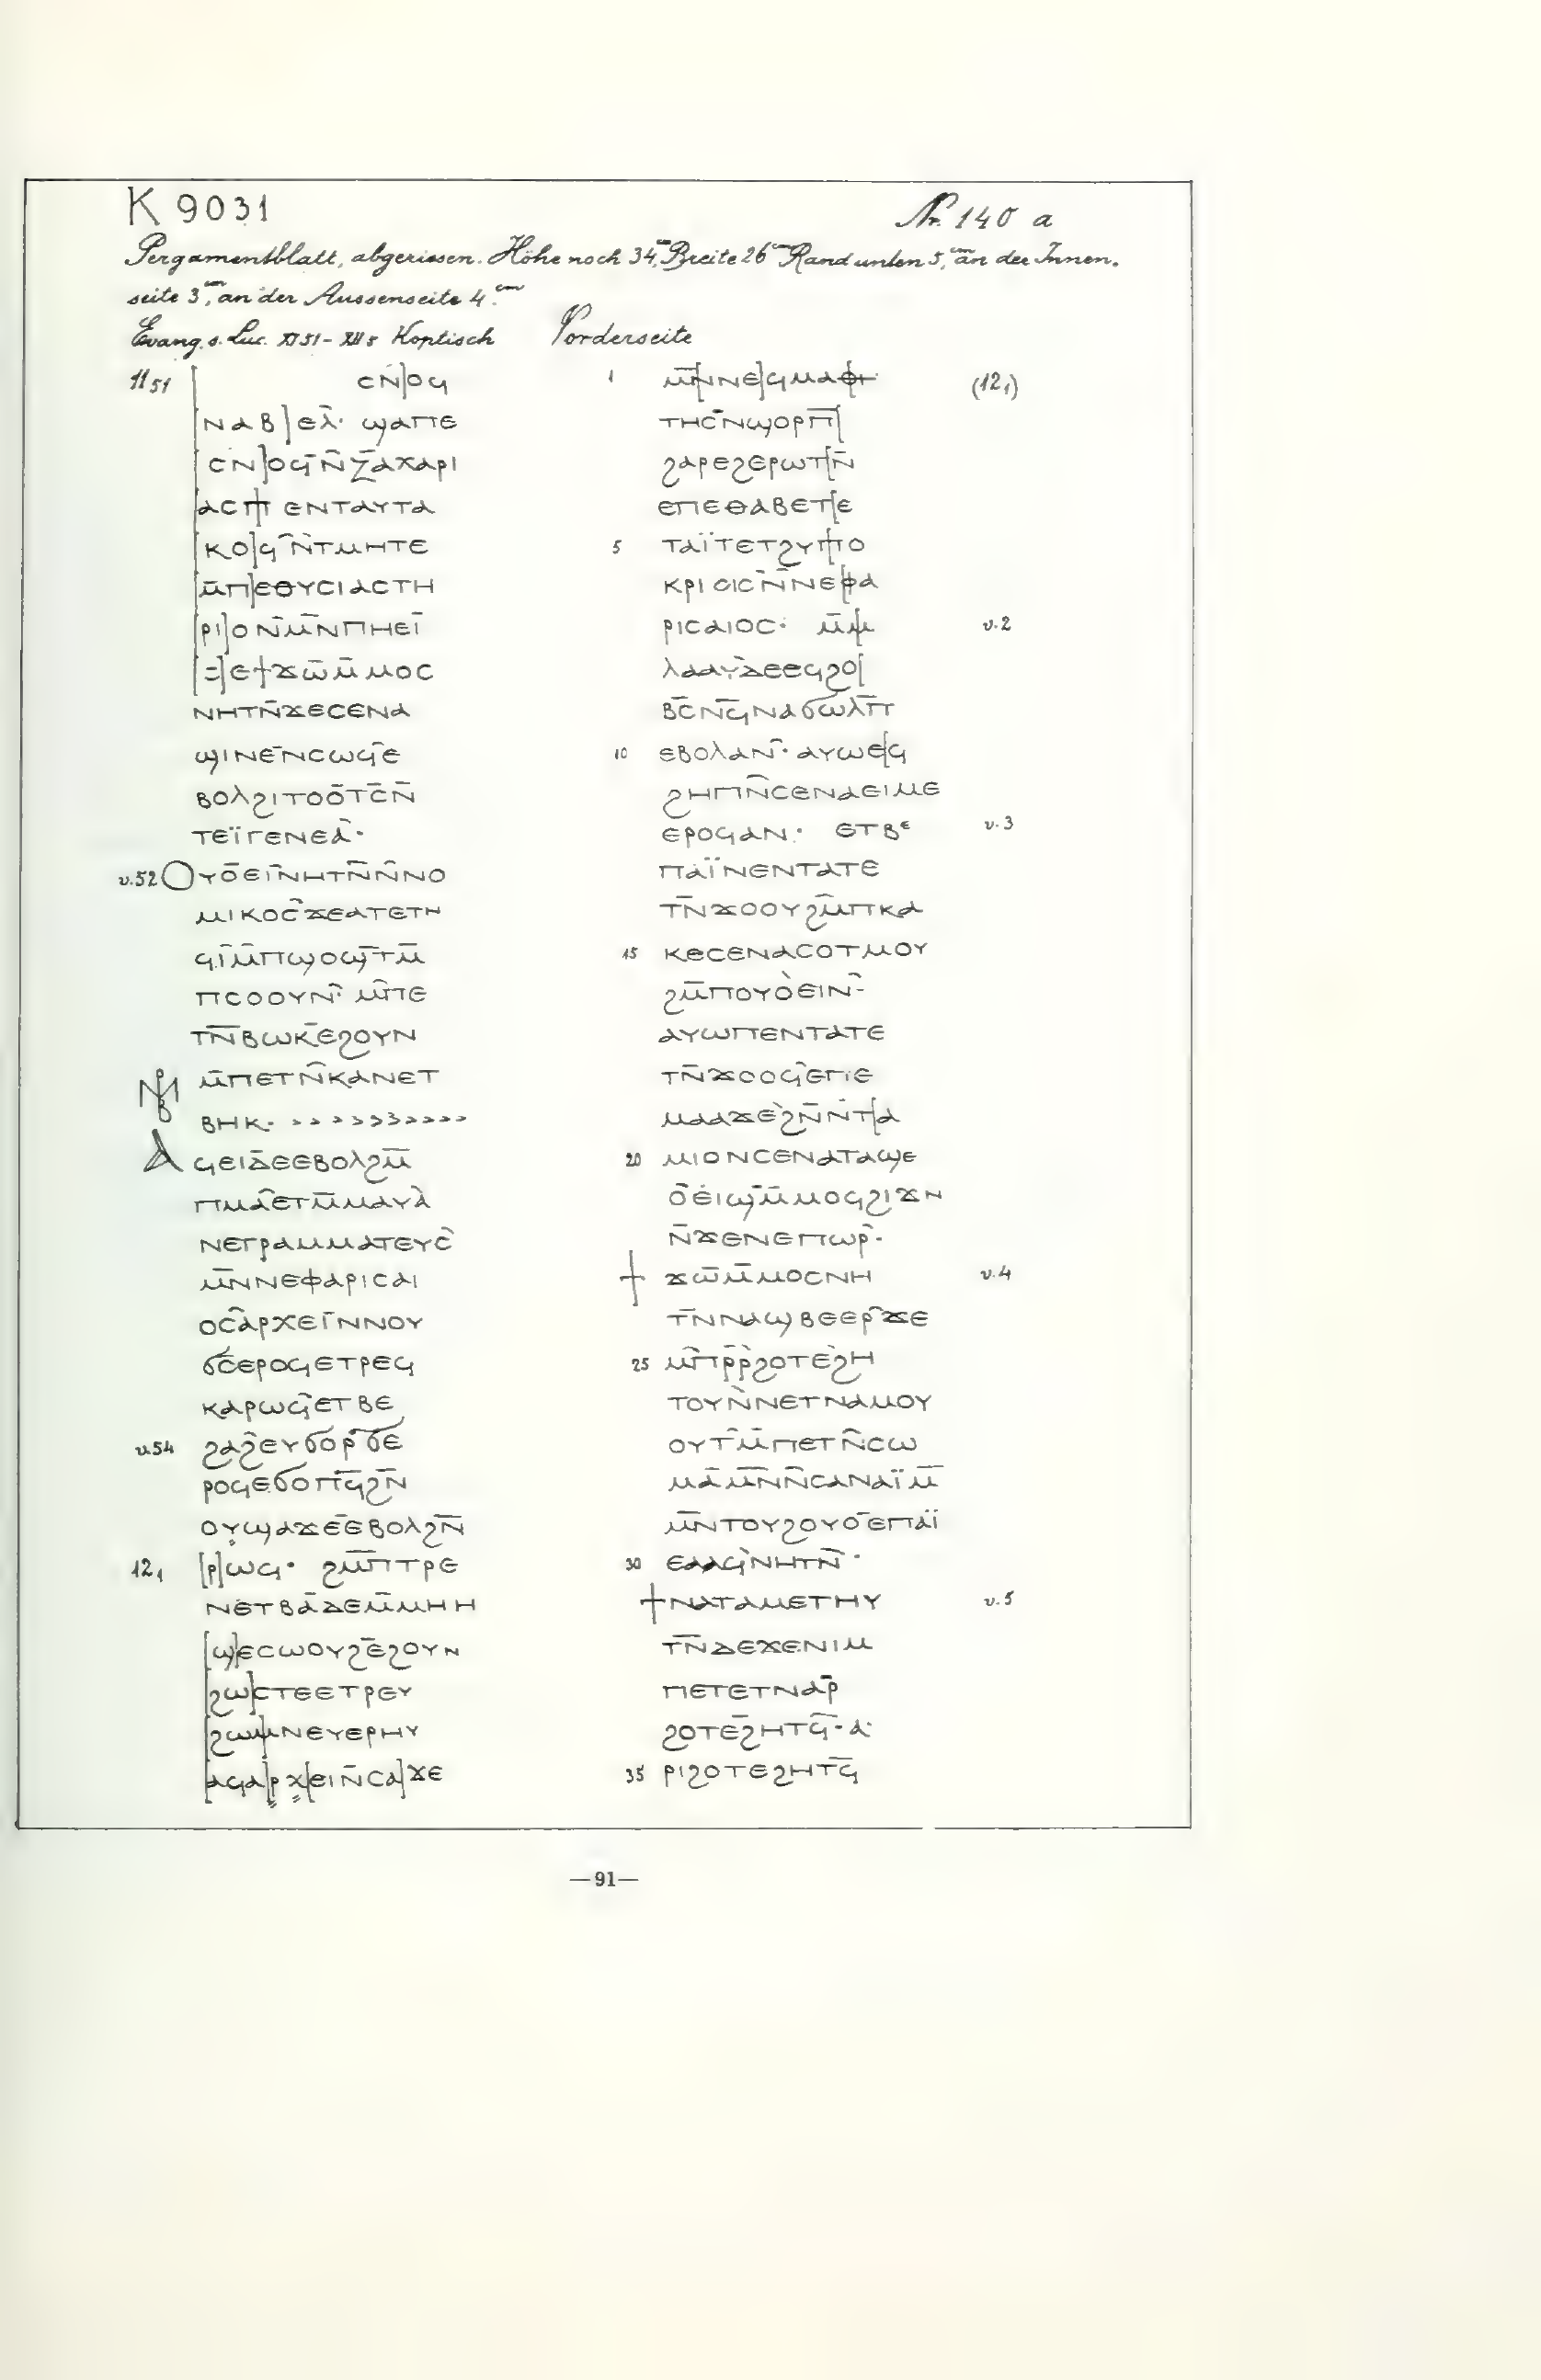 K 9031
Nr. 140 a
Pergamentblatt, abgerissen. Höhe noch 34 cm, Breite 26 cm Rand unten 5, cm an der Innen-
seite 3 cm, an der Aussenseite 4. cm
Evang. s. Luc. XI 51 - XII 5 Koptisch Vorderseite
11 51 [ ⲥⲛ̄]ⲟϥ
[ⲛⲁⲃ]ⲉⲗ̀· ϣⲁⲡⲉ
[ⲥⲛ]ⲟϥ̄ⲛ̄ⲍ̄ⲁⲭⲁⲣⲓ
[ⲁⲥⲡ]ⲉⲛⲧⲁⲩⲧⲁ
[ⲕⲟ]ϥ̄ⲛ̄ⲧⲙⲏⲧⲉ
[ⲙ̄ⲡ]ⲉⲑⲩⲥⲓⲁⲥⲧⲏ
[ⲣⲓ]ⲟⲛ̄ⲙ̄ⲛⲡⲏⲉⲓ̄
[=]ⲉϯϫⲱ̄ⲙ̄ⲙⲟⲥ
ⲛⲏⲧⲛ̄ϫⲉⲥⲉⲛⲁ
ϣⲓⲛⲉ̄ⲛⲥⲱϥ̄ⲉ
ⲃⲟⲗϩⲓⲧⲟⲟ̄ⲧⲥ̄ⲛ̄
ⲧⲉⲓ̈ⲅⲉⲛⲉⲁ̀·
v.52 ⲟⲩⲟ̄ⲉⲓ̄ⲛⲏⲧⲛ̄ⲛ̄ⲛⲟ
ⲙⲓⲕⲟⲥ̂ϫⲉⲁⲧⲉⲧⲛ
ϥⲓ̄ⲙ̄ⲡϣⲟϣ̄ⲧⲙ̄
ⲡⲥⲟⲟⲩⲛ̂· ⲙ̂ⲡⲉ
ⲧⲛ̄ⲃⲱⲕ̄ⲉϩⲟⲩⲛ
ⲙ̄ⲡⲉⲧⲛ̂ⲕⲁⲛⲉⲧ
ⲃⲏⲕ· >>>>>>>>>>
ⲁϥⲉⲓⲇ̄ⲉⲉⲃⲟⲗϩⲙ̄
ⲡⲙⲁ̂ⲉⲧⲙ̄ⲙⲁⲩⲁ̀
ⲛⲉⲅⲣⲁⲙⲙⲁⲧⲉⲩⲥ̀
ⲙ̄ⲛⲛⲉⲫⲁⲣⲓⲥⲁⲓ
ⲟⲥ̂ⲁⲣⲭⲉⲓ̄ⲛⲛⲟⲩ
ϭⲥ́ⲉⲣⲟϥⲉⲧⲣⲉϥ
ⲕⲁⲣⲱϥ̄ⲉⲧⲃⲉ
v.54 ϩⲁϩ̂ⲉⲩϭⲟⲣ̂ϭⲉ
ⲣⲟϥⲉϭⲟⲡϥ̄ϩⲛ̄
ⲟⲩϣⲁϫⲉ̄ⲉⲃⲟⲗϩⲛ̄
12 1 [ⲣ]ⲱϥ· ϩⲙ̄ⲡⲧⲣⲉ
ⲛⲉⲧⲃⲁ̄ⲇⲉⲙ̄ⲙⲏⲏ
[ϣ]ⲉⲥⲱⲟⲩϩ̄ⲉϩⲟⲩⲛ
[ϩⲱ]ⲥⲧⲉⲉⲧⲣⲉⲩ
[ϩⲱⲙ]ⲛⲉⲩⲉⲣⲏⲩ
[ⲁϥⲁ]ⲣⲭ[ⲉⲓⲛ̄ⲥⲁ]ϫⲉ
1 ⲙ̄[ⲛⲛⲉ]ϥⲙⲁⲑⲏ (12 1)
ⲧⲏⲥ̄ⲛϣⲟⲣⲡ̄[
ϩⲁⲣⲉϩⲉⲣⲱⲧ[ⲛ̄
ⲉⲡⲉⲑⲁⲃⲉⲧ[ⲉ
5 ⲧⲁⲓ̈ⲧⲉⲧϩⲩ[ⲡⲟ
ⲕⲣⲓⲥⲓⲥ̀ⲛ̄ⲛⲉ[ⲫⲁ
ⲣⲓⲥⲁⲓⲟⲥ· ⲙ̄[ⲙ v.2
ⲗⲁⲁⲩ̀ⲇⲉⲉϥϩⲟ[
ⲃⲥ̄ⲛϥ̄ⲛⲁϭⲱⲗⲡ̄
10 ⲉⲃⲟⲗⲁⲛ̂· ⲁⲩⲱⲉ[ϥ
ϩⲏⲡⲛ̂ⲥⲉⲛⲁⲉⲓⲙⲉ
ⲉⲣⲟϥⲁⲛ· ⲉⲧⲃⲉ v.3
ⲡⲁⲓ̈ⲛⲉⲛⲧⲁⲧⲉ
ⲧⲛ̄ϫⲟⲟⲩϩⲙ̂ⲡⲕⲁ
15 ⲕⲉⲥⲉⲛⲁⲥⲟⲧⲙⲟⲩ
ϩⲙ̄ⲡⲟⲩⲟ̀ⲉⲓⲛ̂-
ⲁⲩⲱⲡⲉⲛⲧⲁⲧⲉ
ⲧⲛ̄ϫⲟⲟϥ̂ⲉⲡⲉ
ⲙⲁⲁϫⲉ̀ϩⲛ̄ⲛ̄ⲧ[ⲁ
20 ⲙⲓⲟⲛⲥⲉⲛⲁⲧⲁϣⲉ
ⲟ̄ⲉⲓϣ̄ⲙ̄ⲙⲟϥϩⲓϫⲛ
ⲛ̄ϫⲉⲛⲉⲡⲱⲣ̂·
ϯ ϫⲱ̄ⲙ̄ⲙⲟⲥⲛⲏ v.4
ⲧ̄ⲛⲛⲁϣⲃⲉⲉⲣ̂ϫⲉ
25 ⲙ̂ⲡⲣ̄ⲣ̀ϩⲟⲧⲉ̀ϩⲏ
ⲧⲟⲩⲛ̀ⲛⲉⲧⲛⲁⲙⲟⲩ
ⲟⲩⲧ̂ⲙ̄ⲡⲉⲧⲛ̂ⲥⲱ
ⲙⲁ̄ⲙ̄ⲛⲛ̄ⲥⲁⲛⲁⲓ̈ⲙ̄
ⲙ̄ⲛⲧⲟⲩϩⲟⲩⲟ̄ⲉⲡⲁⲓ̈
30 ⲉⲁⲁϥ̀ⲛⲏⲧⲛ̄·
ϯⲛⲁⲧⲁⲙⲉⲧⲏⲩ v.5
ⲧⲛ̄ⲇⲉϫⲉⲛⲓⲙ
ⲡⲉⲧⲉⲧⲛⲁⲣ̄
ϩⲟⲧⲉ̄ϩⲏⲧϥ̄· ⲁ·
35 ⲣⲓϩⲟⲧⲉϩⲏⲧϥ̄
—91—